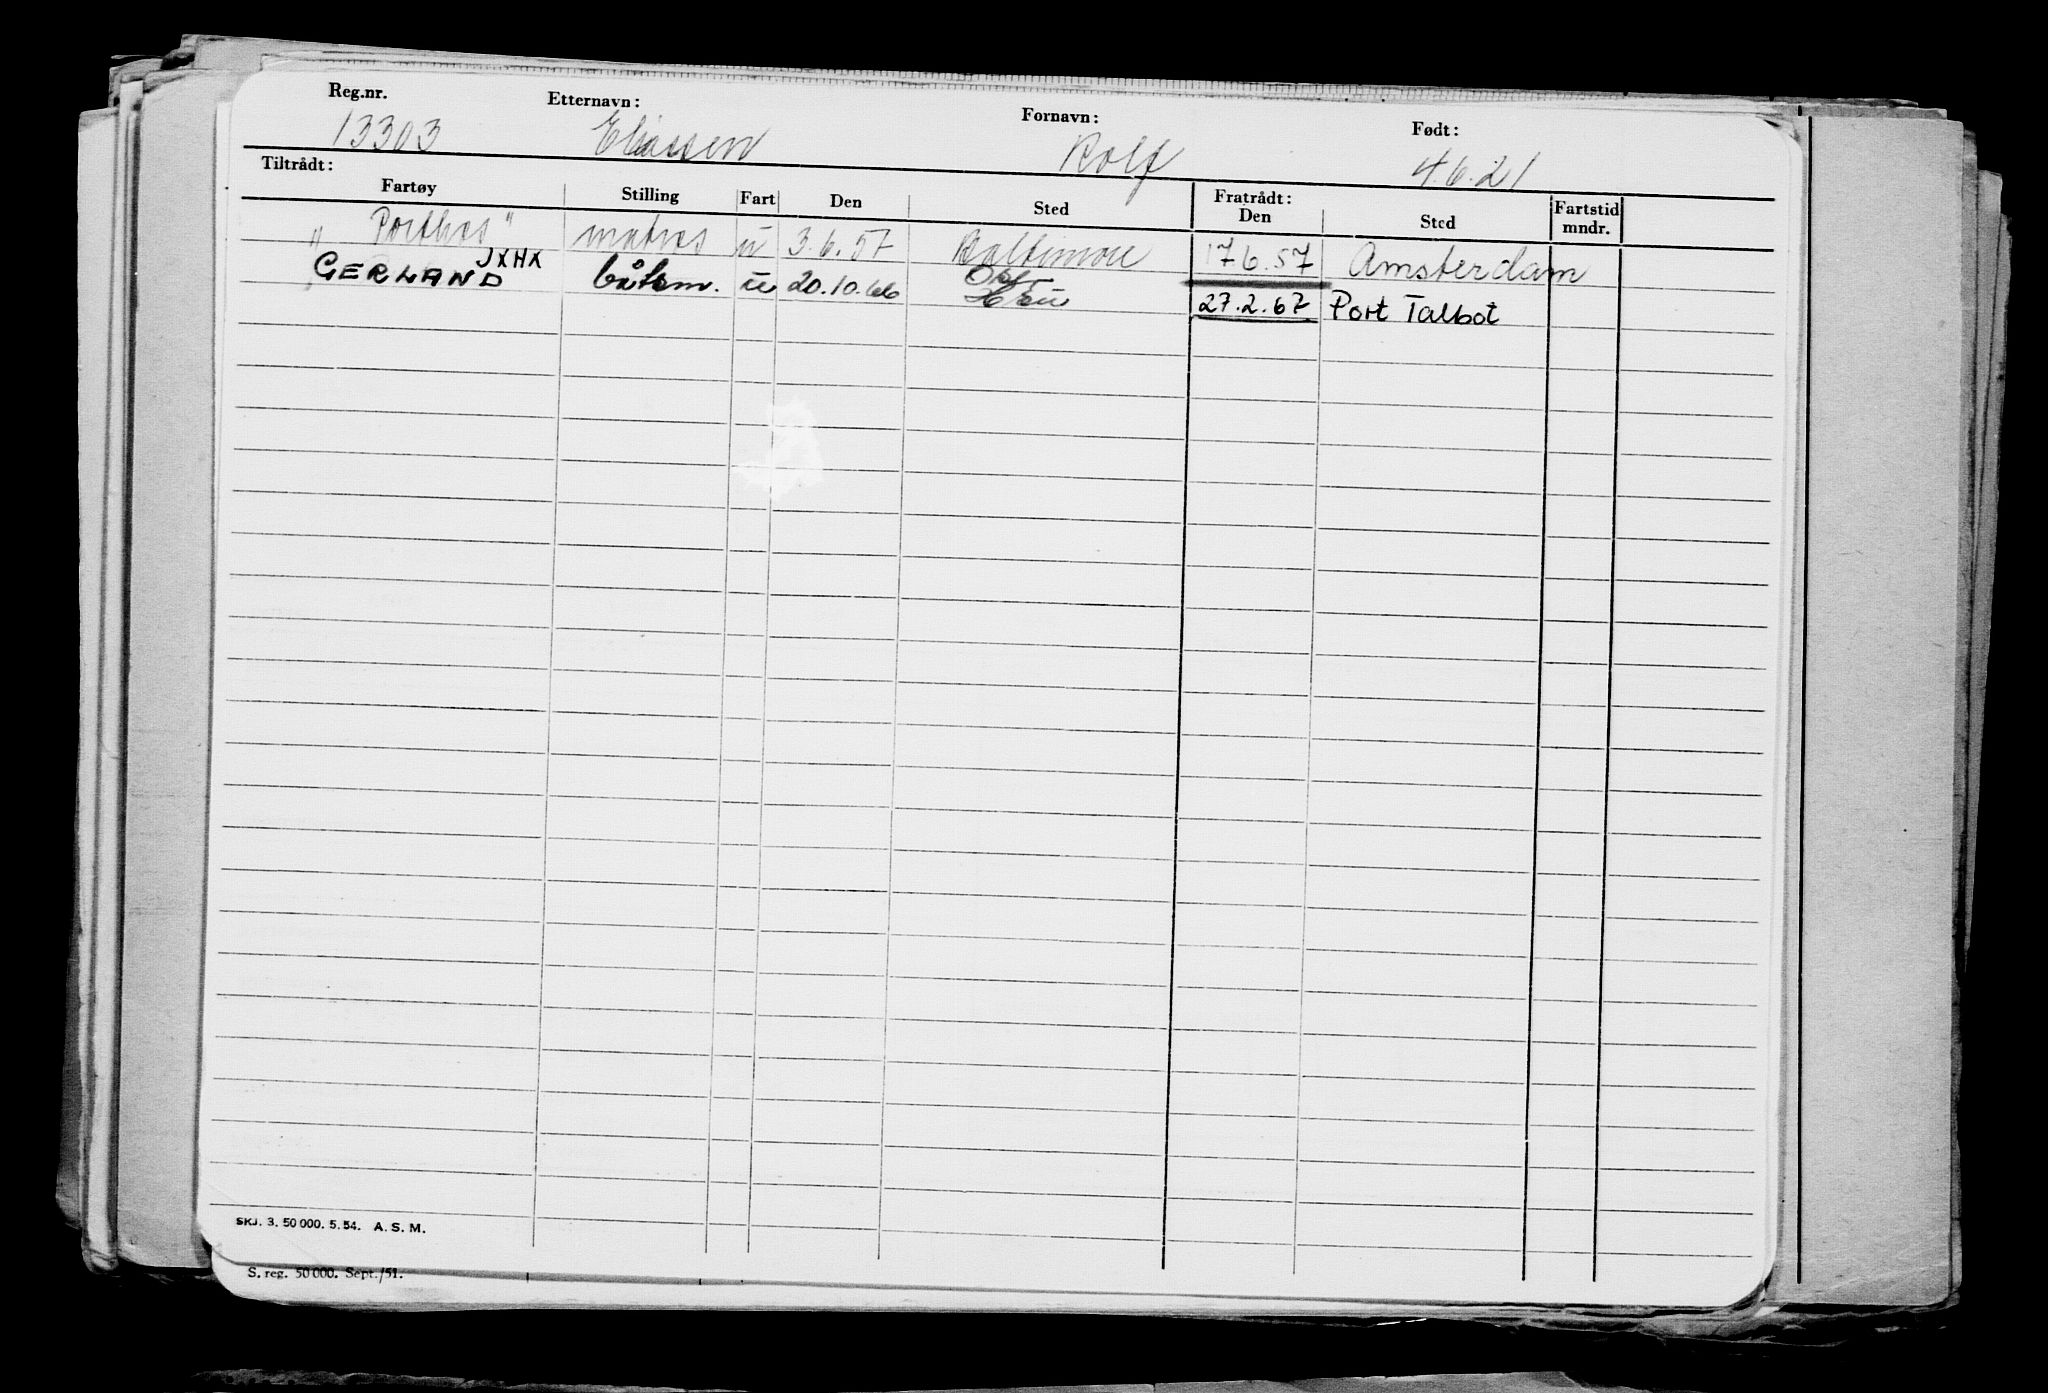 Reg.nr. Etternavn: Fornavn: Født:
13303 Eliassen Rolf 4.6.21
Tiltrådt: Fratrådt:
Fartøy Stilling Fart Den Sted Den Sted Fartstid mndr.
"Porthos" matros u 3.6.57 Baltimore 17 6.57 Amsterdam
JXHX
GERLAND båtsm. u 20.10.66 27.2.67 Port Talbot
SKJ. 3. 50 000. 5. 54. A. S. M.
S. reg. 50 000. Sept./51.